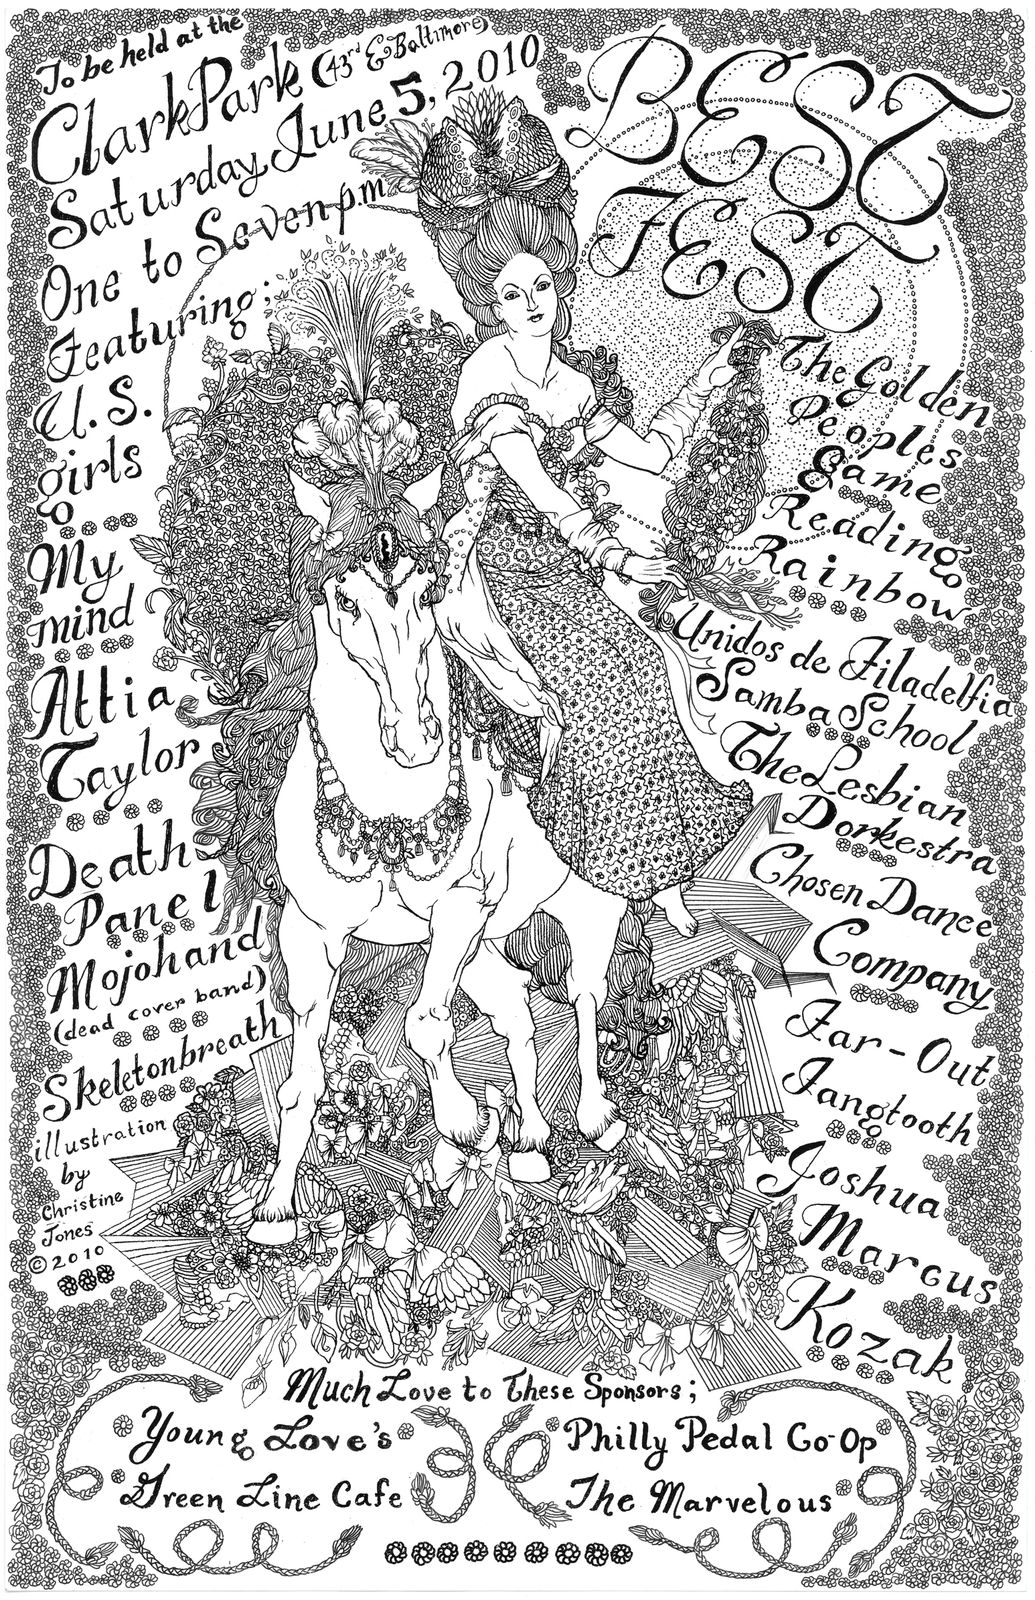 To be held at the
Clark Park (43rd & Baltimore)
Saturday, June 5, 2010
One to Seven p.m.
Featuring;
U.S.
girls
My
mind
Attia
Taylor
Death
Panel
Mojohand
(dead cover band)
Skeletonbreath
illustration
by
Christine
Jones
© 2010
BEST
FEST
The Golden
Peoples
Game
Reading
Rainbow
Unidos de Filadelfia
Samba School
The Lesbian
Dorkestra
Chosen Dance
Company
Far-Out
Fangtooth
Joshua
Marcus
Kozak
Much Love to These Sponsors;
Young Love's
Green Line Cafe
Philly Pedal Co-Op
The Marvelous